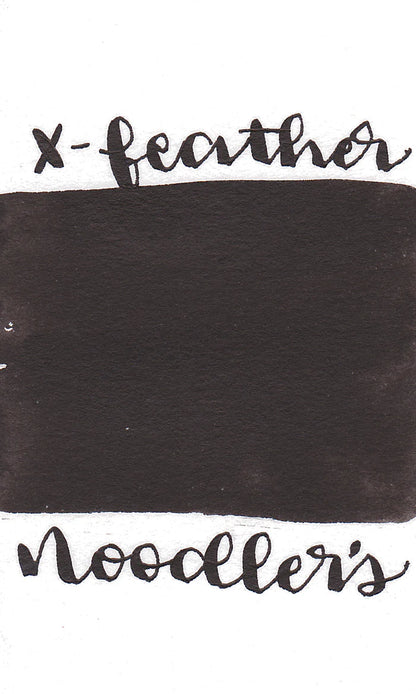 x-feather
Noodler's